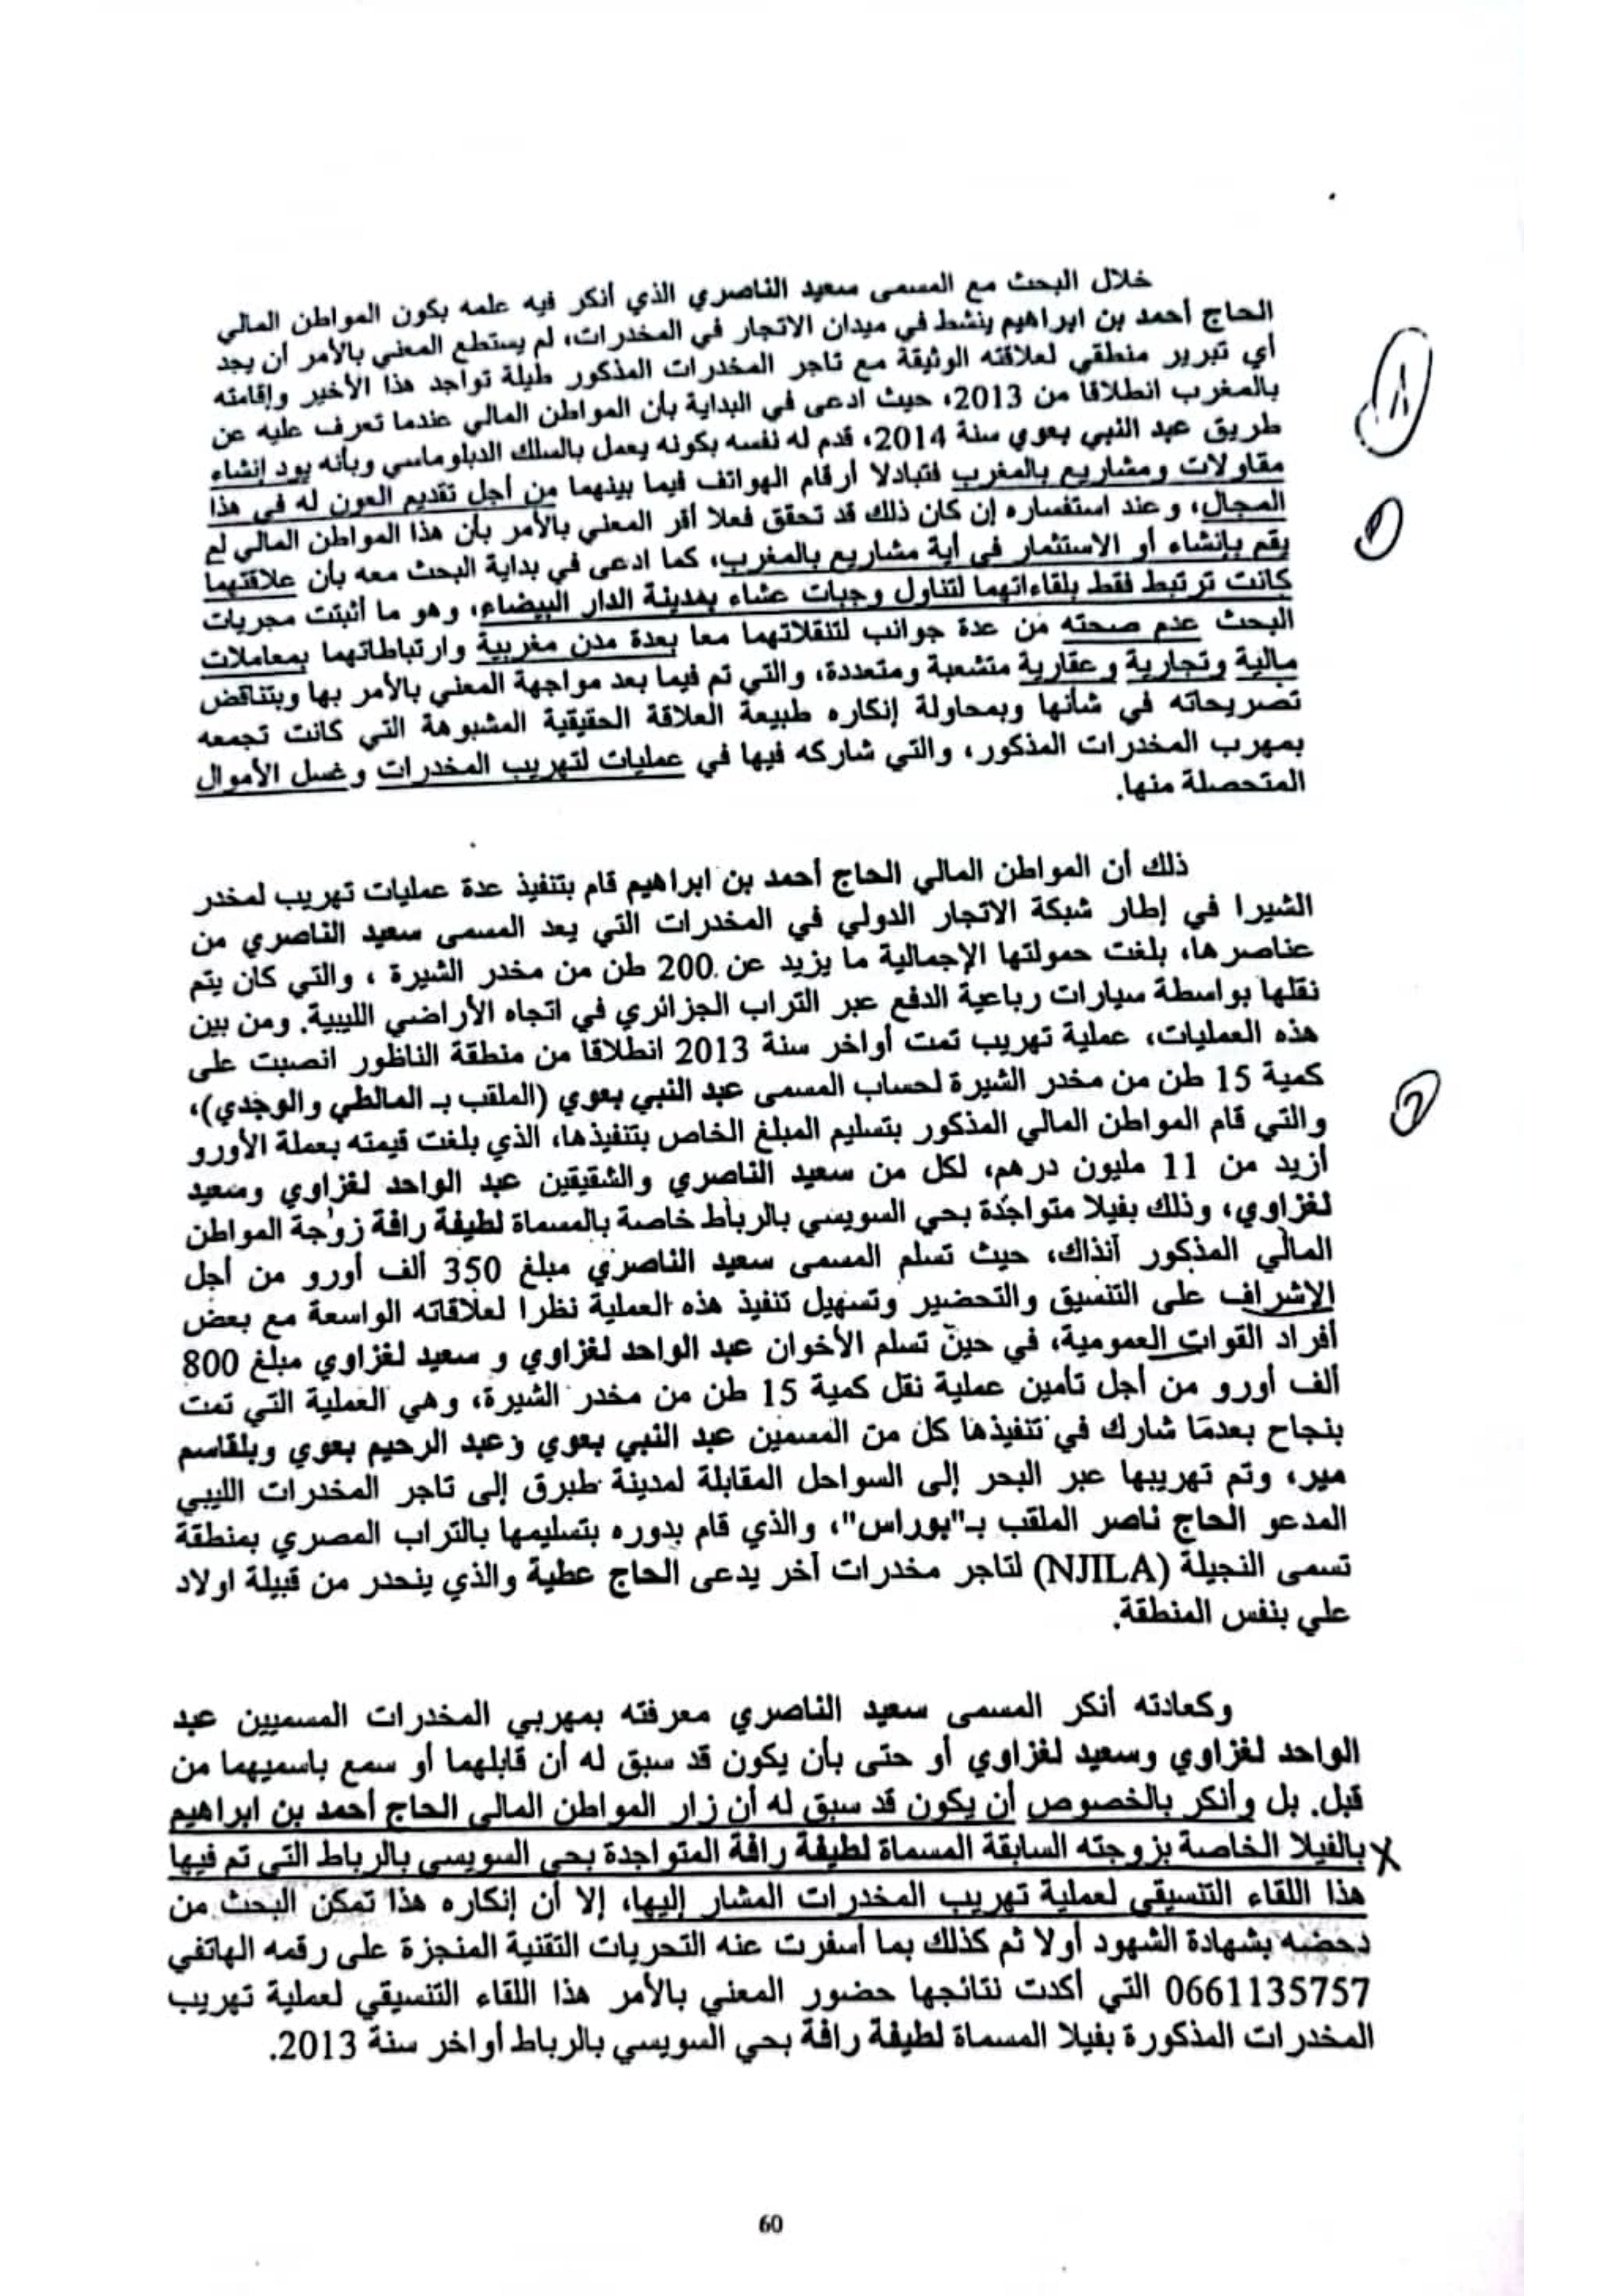 خلال البحث مع المسمى سعيد الناصري الذي أنكر فيه علمه بكون المواطن المالي
الحاج أحمد بن ابراهيم ينشط في ميدان الاتجار في المخدرات، لم يستطع المعني بالأمر أن يجد
أي تبرير منطقي لعلاقته الوثيقة مع تاجر المخدرات المذكور طيلة تواجد هذا الأخير وإقامته
بالمغرب انطلاقا من 2013، حيث ادعى في البداية بأن المواطن المالي عندما تعرف عليه عن
طريق عبد النبي بعوي سنة 2014، قدم له نفسه بكونه يعمل بالسلك الدبلوماسي وبأنه يود إنشاء
مقاولات ومشاريع بالمغرب فتبادلا أرقام الهواتف فيما بينهما من أجل تقديم العون له في هذا
المجال، وعند استفساره إن كان ذلك قد تحقق فعلا أقر المعني بالأمر بأن هذا المواطن المالي لم
يقم بإنشاء أو الاستثمار في أية مشاريع بالمغرب، كما ادعى في بداية البحث معه بأن علاقتهما
كانت ترتبط فقط بلقاءاتهما لتناول وجبات عشاء بمدينة الدار البيضاء، وهو ما أثبتت مجريات
البحث عدم صحته من عدة جوانب لتنقلاتهما معا بعدة مدن مغربية وارتباطاتهما بمعاملات
مالية وتجارية وعقارية متشعبة ومتعددة، والتي تم فيما بعد مواجهة المعني بالأمر بها وبتناقض
تصريحاته في شأنها وبمحاولة إنكاره طبيعة العلاقة الحقيقية المشبوهة التي كانت تجمعه
بمهرب المخدرات المذكور، والتي شاركه فيها في عمليات لتهريب المخدرات وغسل الأموال
المتحصلة منها.
ذلك أن المواطن المالي الحاج أحمد بن ابراهيم قام بتنفيذ عدة عمليات تهريب لمخدر
الشيرا في إطار شبكة الاتجار الدولي في المخدرات التي يعد المسمى سعيد الناصري من
عناصرها، بلغت حمولتها الإجمالية ما يزيد عن 200 طن من مخدر الشيرة ، والتي كان يتم
نقلها بواسطة سيارات رباعية الدفع عبر التراب الجزائري في اتجاه الأراضي الليبية. ومن بين
هذه العمليات، عملية تهريب تمت أواخر سنة 2013 انطلاقا من منطقة الناظور انصبت على
كمية 15 طن من مخدر الشيرة لحساب المسمى عبد النبي بعوي (الملقب بـ المالطي والوجدي)،
والتي قام المواطن المالي المذكور بتسليم المبلغ الخاص بتنفيذها، الذي بلغت قيمته بعملة الأورو
أزيد من 11 مليون درهم، لكل من سعيد الناصري والشقيقين عبد الواحد لغزاوي وسعيد
لغزاوي، وذلك بفيلا متواجدة بحي السويسي بالرباط خاصة بالمسماة لطيفة رافة زوجة المواطن
المالي المذكور آنذاك، حيث تسلم المسمى سعيد الناصري مبلغ 350 ألف أورو من أجل
الإشراف على التنسيق والتحضير وتسهيل تنفيذ هذه العملية نظرا لعلاقاته الواسعة مع بعض
أفراد القوات العمومية، في حين تسلم الأخوان عبد الواحد لغزاوي و سعيد لغزاوي مبلغ 800
ألف أورو من أجل تأمين عملية نقل كمية 15 طن من مخدر الشيرة، وهي العملية التي تمت
بنجاح بعدما شارك في تنفيذها كل من المسمين عبد النبي بعوي وعبد الرحيم بعوي وبلقاسم
مير، وتم تهريبها عبر البحر إلى السواحل المقابلة لمدينة طبرق إلى تاجر المخدرات الليبي
المدعو الحاج ناصر الملقب بـ"بوراس"، والذي قام بدوره بتسليمها بالتراب المصري بمنطقة
تسمى النجيلة (NJILA) لتاجر مخدرات آخر يدعى الحاج عطية والذي ينحدر من قبيلة اولاد
علي بنفس المنطقة.
وكعادته أنكر المسمى سعيد الناصري معرفته بمهربي المخدرات المسميين عبد
الواحد لغزاوي وسعيد لغزاوي أو حتى بأن يكون قد سبق له أن قابلهما أو سمع باسميهما من
قبل. بل وأنكر بالخصوص أن يكون قد سبق له أن زار المواطن المالي الحاج أحمد بن ابراهيم
بالفيلا الخاصة بزوجته السابقة المسماة لطيفة رافة المتواجدة بحي السويسي بالرباط التي تم فيها
هذا اللقاء التنسيقي لعملية تهريب المخدرات المشار إليها، إلا أن إنكاره هذا تمكن البحث من
دحضه بشهادة الشهود أولا ثم كذلك بما أسفرت عنه التحريات التقنية المنجزة على رقمه الهاتفي
0661135757 التي أكدت نتائجها حضور المعني بالأمر هذا اللقاء التنسيقي لعملية تهريب
المخدرات المذكورة بفيلا المسماة لطيفة رافة بحي السويسي بالرباط أواخر سنة 2013.
60